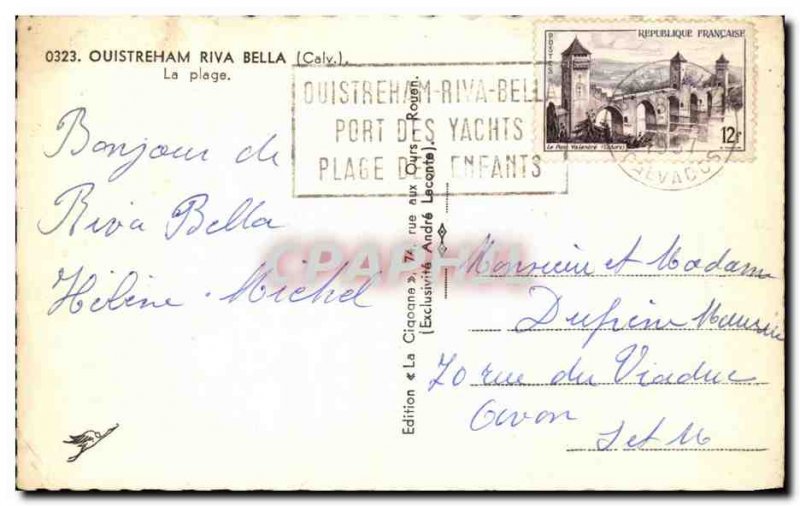 0323. OUISTREHAM RIVA BELLA (Calv.).
La plage.
OUISTREHAM-RIVA-BELLA
PORT DES YACHTS
PLAGE DES ENFANTS
POSTES
REPUBLIQUE FRANÇAISE
12F
Le Pont Valentré (Cahors)
CALVADOS
Bonjour de
Riva Bella
Hélène. Michel
Edition « La Cigogne », 74, rue aux Ours, Rouen.
(Exclusivité André Leconte).
CPARAMA
Monsieur et Madame
Dupéne Maurice
70 rue du Viaduc
Avon
S et M